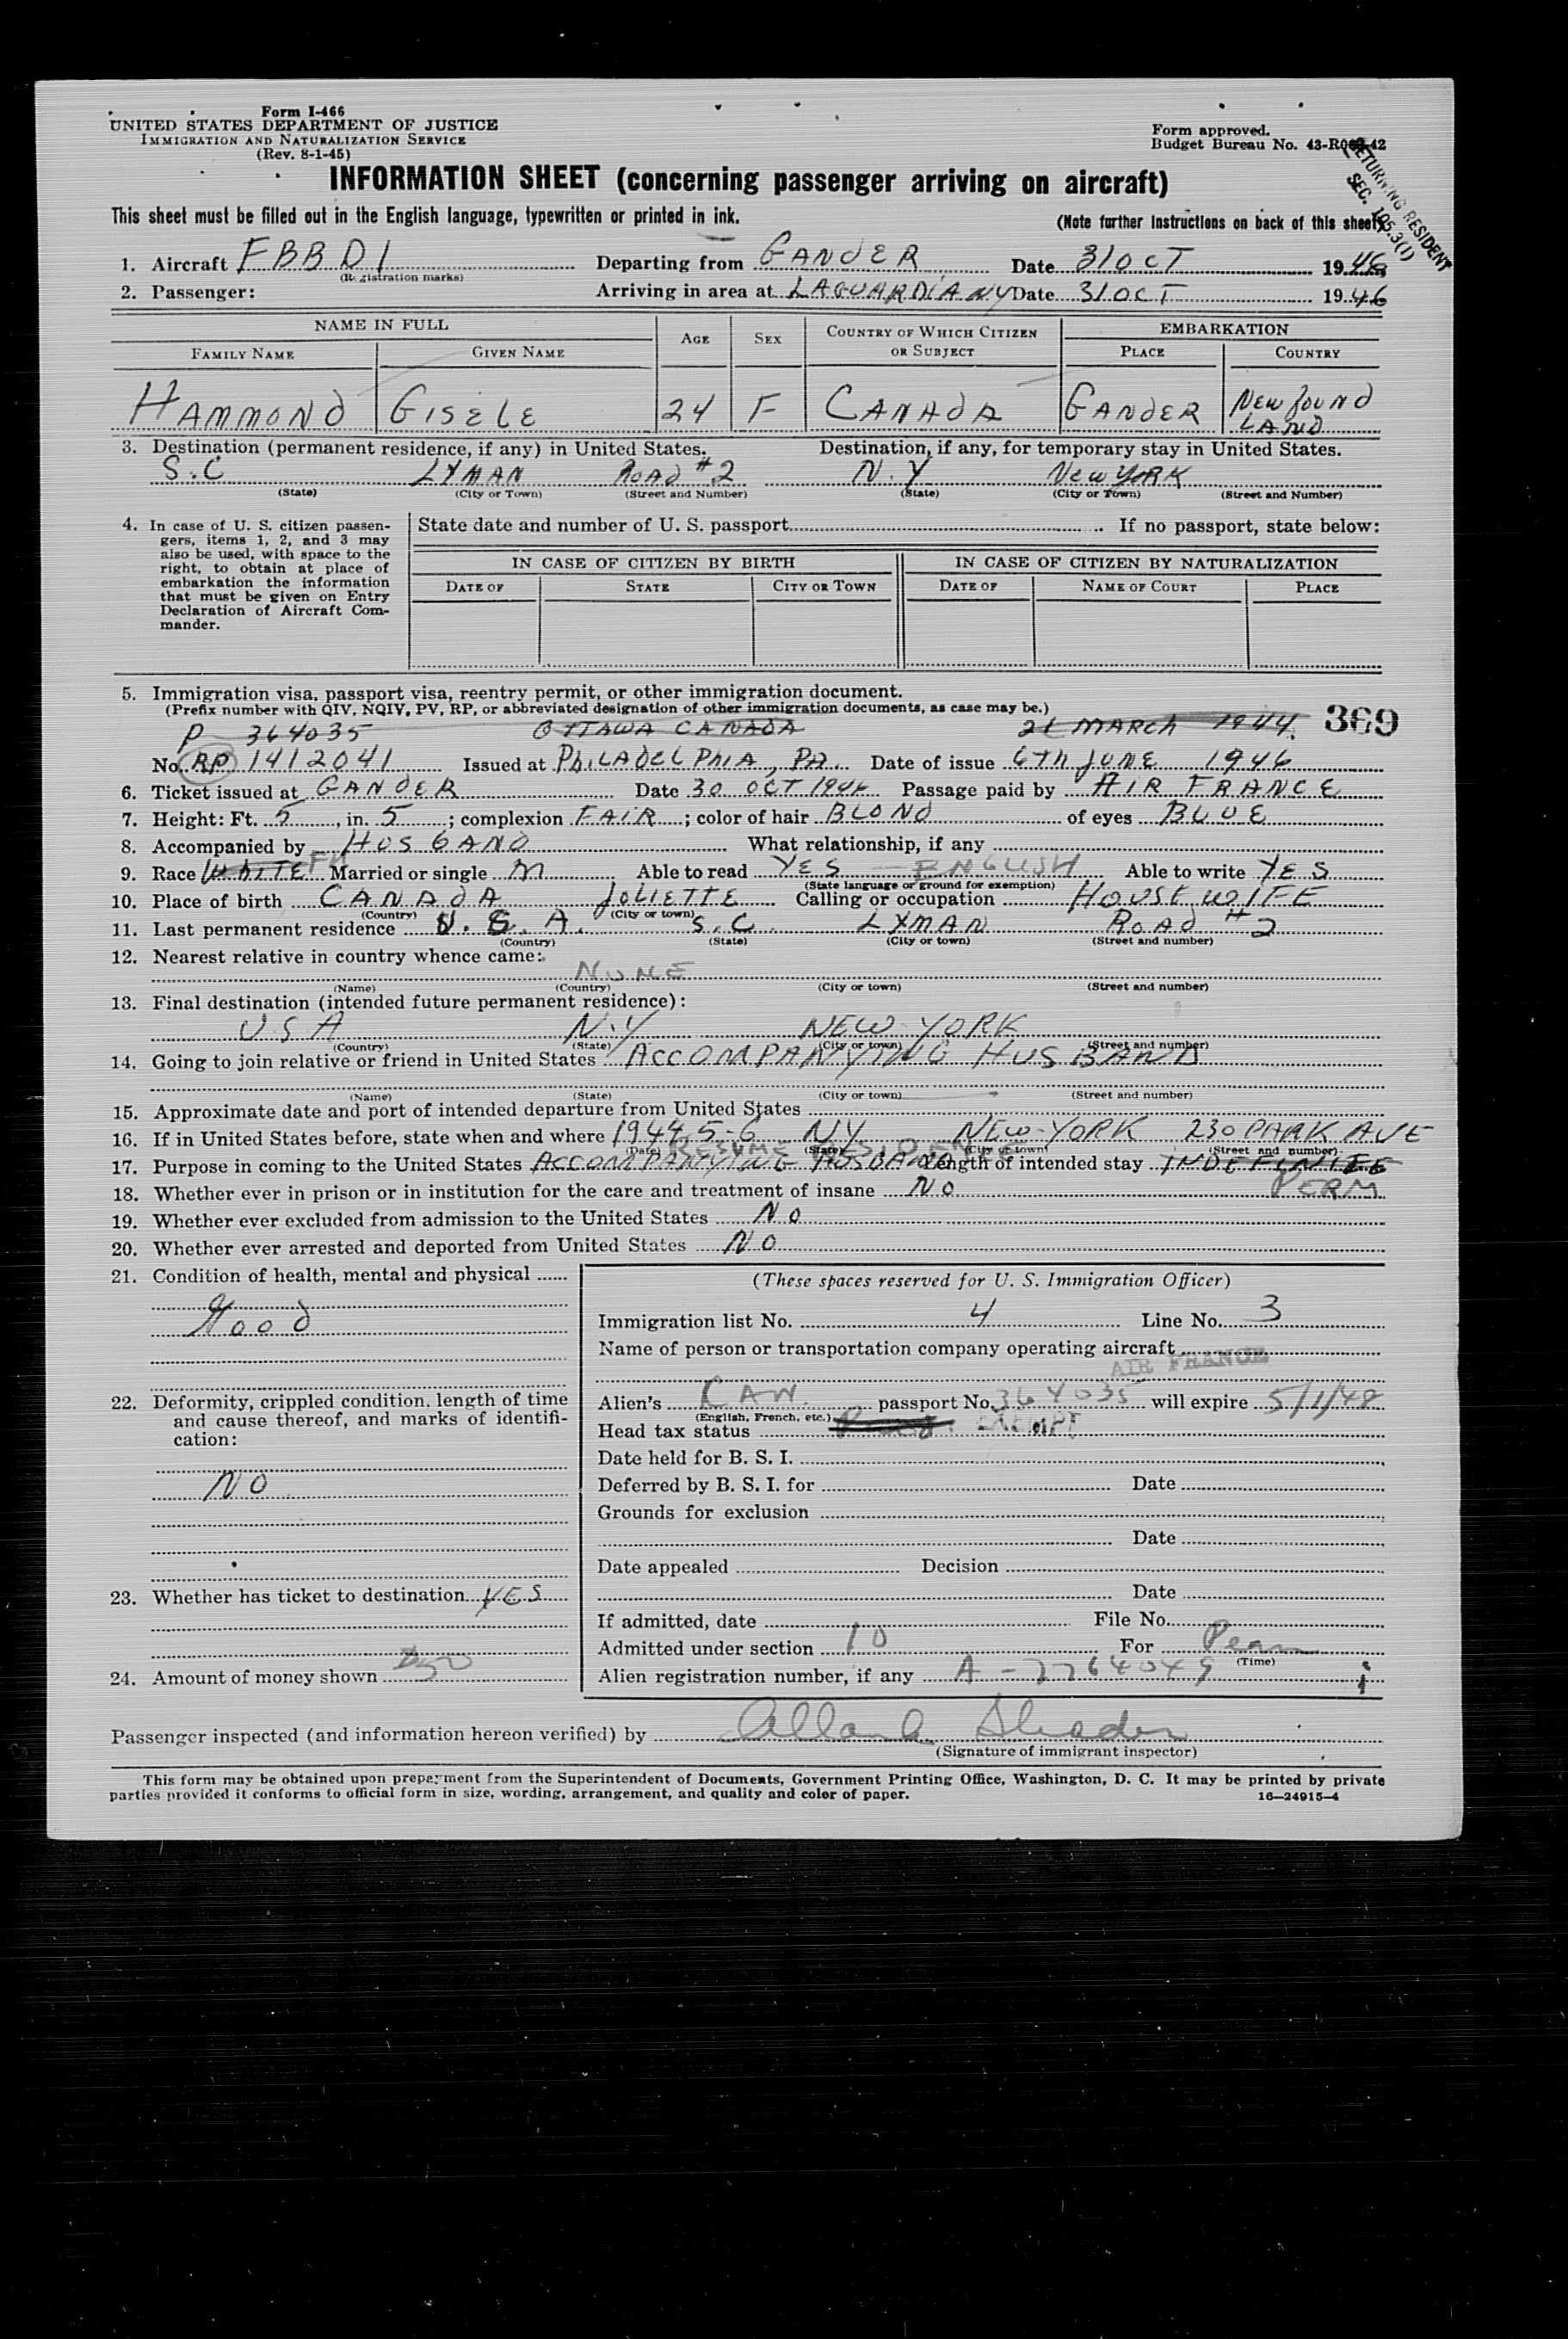 Form I-466
UNITED STATES DEPARTMENT OF JUSTICE
IMMIGRATION AND NATURALIZATION SERVICE
(Rev. 8-1-45)
Form approved.
Budget Bureau No. 43-R
RETURNING RESIDENT
SEC. 105.3(1)
INFORMATION SHEET (concerning passenger arriving on aircraft)
This sheet must be filled out in the English language, typewritten or printed in ink. (Note further instructions on back of this sheet)
1. Aircraft FBBDI Departing from GANDER Date 31 OCT 1946
(Registration marks)
2. Passenger: Arriving in area at LAGUARDIA NY Date 31 OCT 1946
NAME IN FULL AGE SEX COUNTRY OF WHICH CITIZEN OR SUBJECT EMBARKATION
FAMILY NAME GIVEN NAME PLACE COUNTRY
HAMMOND GISELE 24 F CANADA GANDER NEWFOUND
LAND
3. Destination (permanent residence, if any) in United States. Destination, if any, for temporary stay in United States.
S.C LYMAN ROAD #2 N.Y NEW YORK
(State) (City or Town) (Street and Number) (State) (City or Town) (Street and Number)
4. In case of U. S. citizen passen-
gers, items 1, 2, and 3 may
also be used, with space to the
right, to obtain at place of
embarkation the information
that must be given on Entry
Declaration of Aircraft Com-
mander.
State date and number of U. S. passport If no passport, state below:
IN CASE OF CITIZEN BY BIRTH IN CASE OF CITIZEN BY NATURALIZATION
DATE OF STATE CITY OR TOWN DATE OF NAME OF COURT PLACE
5. Immigration visa, passport visa, reentry permit, or other immigration document.
(Prefix number with QIV, NQIV, PV, RP, or abbreviated designation of other immigration documents, as case may be.)
P 364035 OTTAWA CANADA 21 MARCH 1944. 369
No. RP 1412041 Issued at PHILADELPHIA, PA. Date of issue 6TH JUNE 1946
6. Ticket issued at GANDER Date 30 OCT 1946 Passage paid by AIR FRANCE
7. Height: Ft. 5, in. 5; complexion FAIR; color of hair BLOND of eyes BLUE
8. Accompanied by HUSBAND What relationship, if any
9. Race WHITE FR Married or single M Able to read YES — ENGLISH Able to write YES
(State language or ground for exemption)
10. Place of birth CANADA JOLIETTE Calling or occupation HOUSEWIFE
(Country) (City or town)
11. Last permanent residence U.S.A. S.C. LYMAN ROAD #2
(Country) (State) (City or town) (Street and number)
12. Nearest relative in country whence came:
NONE
(Name) (Country) (City or town) (Street and number)
13. Final destination (intended future permanent residence):
USA N.Y NEW YORK
(Country) (State) (City or town) (Street and number)
14. Going to join relative or friend in United States ACCOMPANYING HUSBAND
(Name) (State) (City or town) (Street and number)
15. Approximate date and port of intended departure from United States
16. If in United States before, state when and where 1944.5-6 NY NEW-YORK 230 PARK AVE
(Date) (State) (City or town) (Street and number)
RESUME RESIDENCE
17. Purpose in coming to the United States ACCOMPANYING HUSBAND Length of intended stay INDEFINITE
PERM
18. Whether ever in prison or in institution for the care and treatment of insane NO
19. Whether ever excluded from admission to the United States NO
20. Whether ever arrested and deported from United States NO
21. Condition of health, mental and physical
Good
22. Deformity, crippled condition, length of time
and cause thereof, and marks of identifi-
cation:
NO
23. Whether has ticket to destination YES
24. Amount of money shown
(These spaces reserved for U. S. Immigration Officer)
Immigration list No. 4 Line No. 3
Name of person or transportation company operating aircraft
AIR FRANCE
Alien's CAN. passport No. 364035 will expire 5/1/48
(English, French, etc.)
Head tax status EXEMPT
Date held for B. S. I.
Deferred by B. S. I. for Date
Grounds for exclusion
Date
Date appealed Decision
Date
If admitted, date File No.
Admitted under section 10 For Perm
(Time)
Alien registration number, if any A-7764049
Passenger inspected (and information hereon verified) by
(Signature of immigrant inspector)
This form may be obtained upon prepayment from the Superintendent of Documents, Government Printing Office, Washington, D. C. It may be printed by private
parties provided it conforms to official form in size, wording, arrangement, and quality and color of paper. 16—24915-4